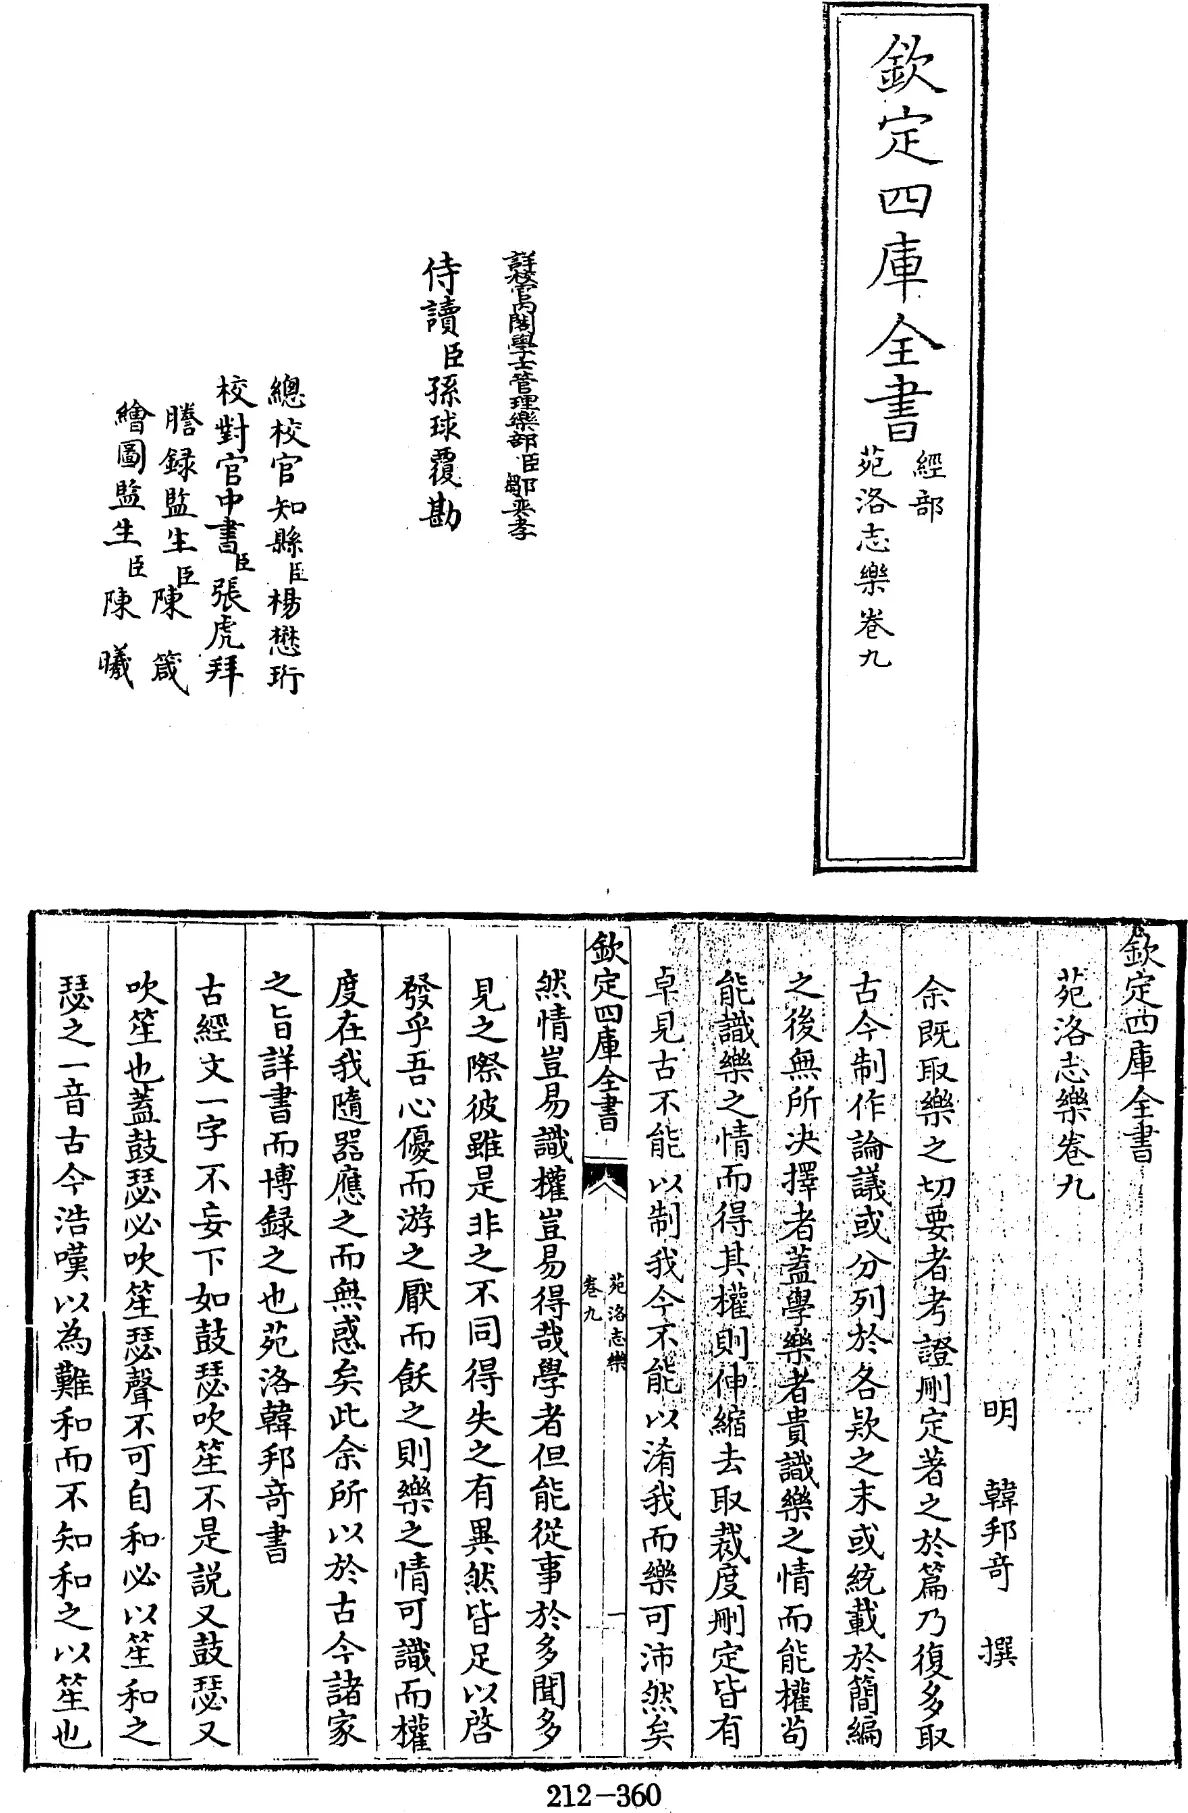 欽定四庫全書
經部
苑洛志樂卷九
詳校官內閣學士管理樂部臣鄒奕孝
侍讀臣孫球覆勘
總校官知縣臣楊懋珩
校對官中書臣張虎拜
謄錄監生臣陳箴
繪圖監生臣陳曦
欽定四庫全書
苑洛志樂卷九
明 韓邦奇 撰
余既取樂之切要者考證刪定著之於篇乃復多取
古今制作論議或分列於各欵之末或統載於簡編
之後無所决擇者蓋學樂者貴識樂之情而能權茍
能識樂之情而得其權則伸縮去取裁度刪定皆有
卓見古不能以制我今不能以淆我而樂可沛然矣
欽定四庫全書
苑洛志樂
卷九
一
然情豈易識權豈易得哉學者但能從事於多聞多
見之際彼雖是非之不同得失之有異然皆足以啓
發乎吾心優而游之厭而飫之則樂之情可識而權
度在我隨器應之而無惑矣此余所以於古今諸家
之旨詳書而博録之也苑洛韓邦奇書
古經文一字不妄下如鼓瑟吹笙不是説又鼓瑟又
吹笙也蓋鼓瑟必吹笙瑟聲不可自和必以笙和之
瑟之一音古今浩嘆以為難和而不知和之以笙也
212-360